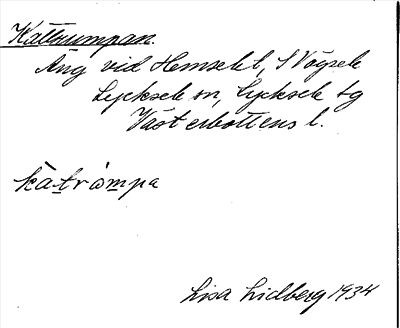 Kattrumpan.
Äng vid Hemsele l, S Vägsele
Lycksele sn, Lycksele tg
Västerbottens l.
katrompa
Lisa Lidberg 1934